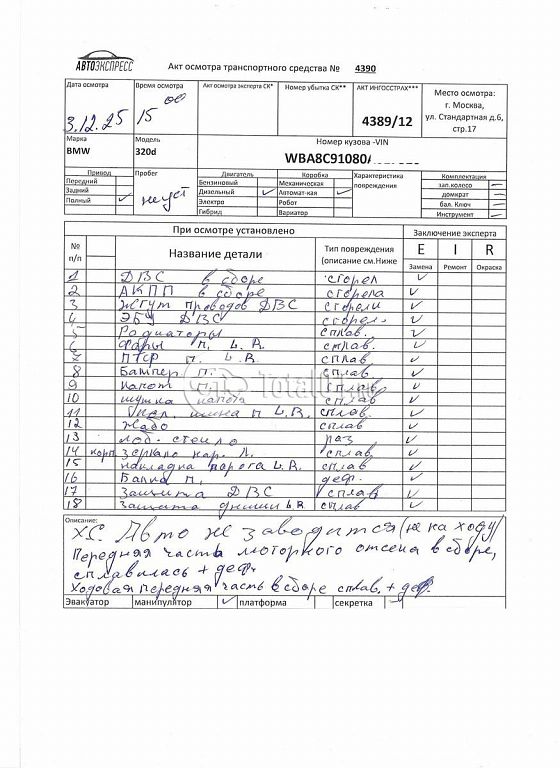 АВТОЭКСПРЕСС
Акт осмотра транспортного средства № 4390
Дата осмотра
3.12.25
Время осмотра
15 00
Акт осмотра эксперта СК*
Номер убытка СК**
АКТ ИНГОССТРАХ***
4389/12
Место осмотра:
г. Москва,
ул. Стандартная д.6,
стр.17
Марка
BMW
Модель
320d
Номер кузова -VIN
WBA8C91080/
Привод
Передний
Задний
Полный
Пробег
Двигатель
Бензиновый
Дизельный
Электро
Гибрид
Коробка
Механическая
Автомат-кая
Робот
Вариатор
Характеристика
повреждения
Комплектация
зап.колесо
домкрат
бал. Ключ
Инструмент
При осмотре установлено
Заключение эксперта
№
п/п
Название детали
Тип повреждения
(описание см.Ниже
E I R
Замена Ремонт Окраска
1 ДВС в сборе сгорел
2 АКПП в сборе сгорела
3 Жгут проводов ДВС сгорели
4 ЭБУ ДВС сгорел.
5 Радиаторы сплав.
6 Фары п. L.R. сплав.
7 ПТФ п. L.R. сплав
8 Бампер п. сплав
9 Капот п. сплав
10 шумка капота сплав
11 п L.R. сплав.
12 Жабо сплав
13 лоб. стекло раз
14 корп. зеркало нар. Л. сплав
15 накладка порога L.R. сплав
16 Балка п. деф.
17 Защита ДВС сплав
18 защита днища L.R сплав
TotalCars
Описание:
Х.С. Авто не заводится (не на ходу)
Передняя часть моторного отсека в сборе,
сплавилась + деф.
Ходовая передняя часть в сборе сплав, + деф.
Эвакуатор манипулятор платформа секретка